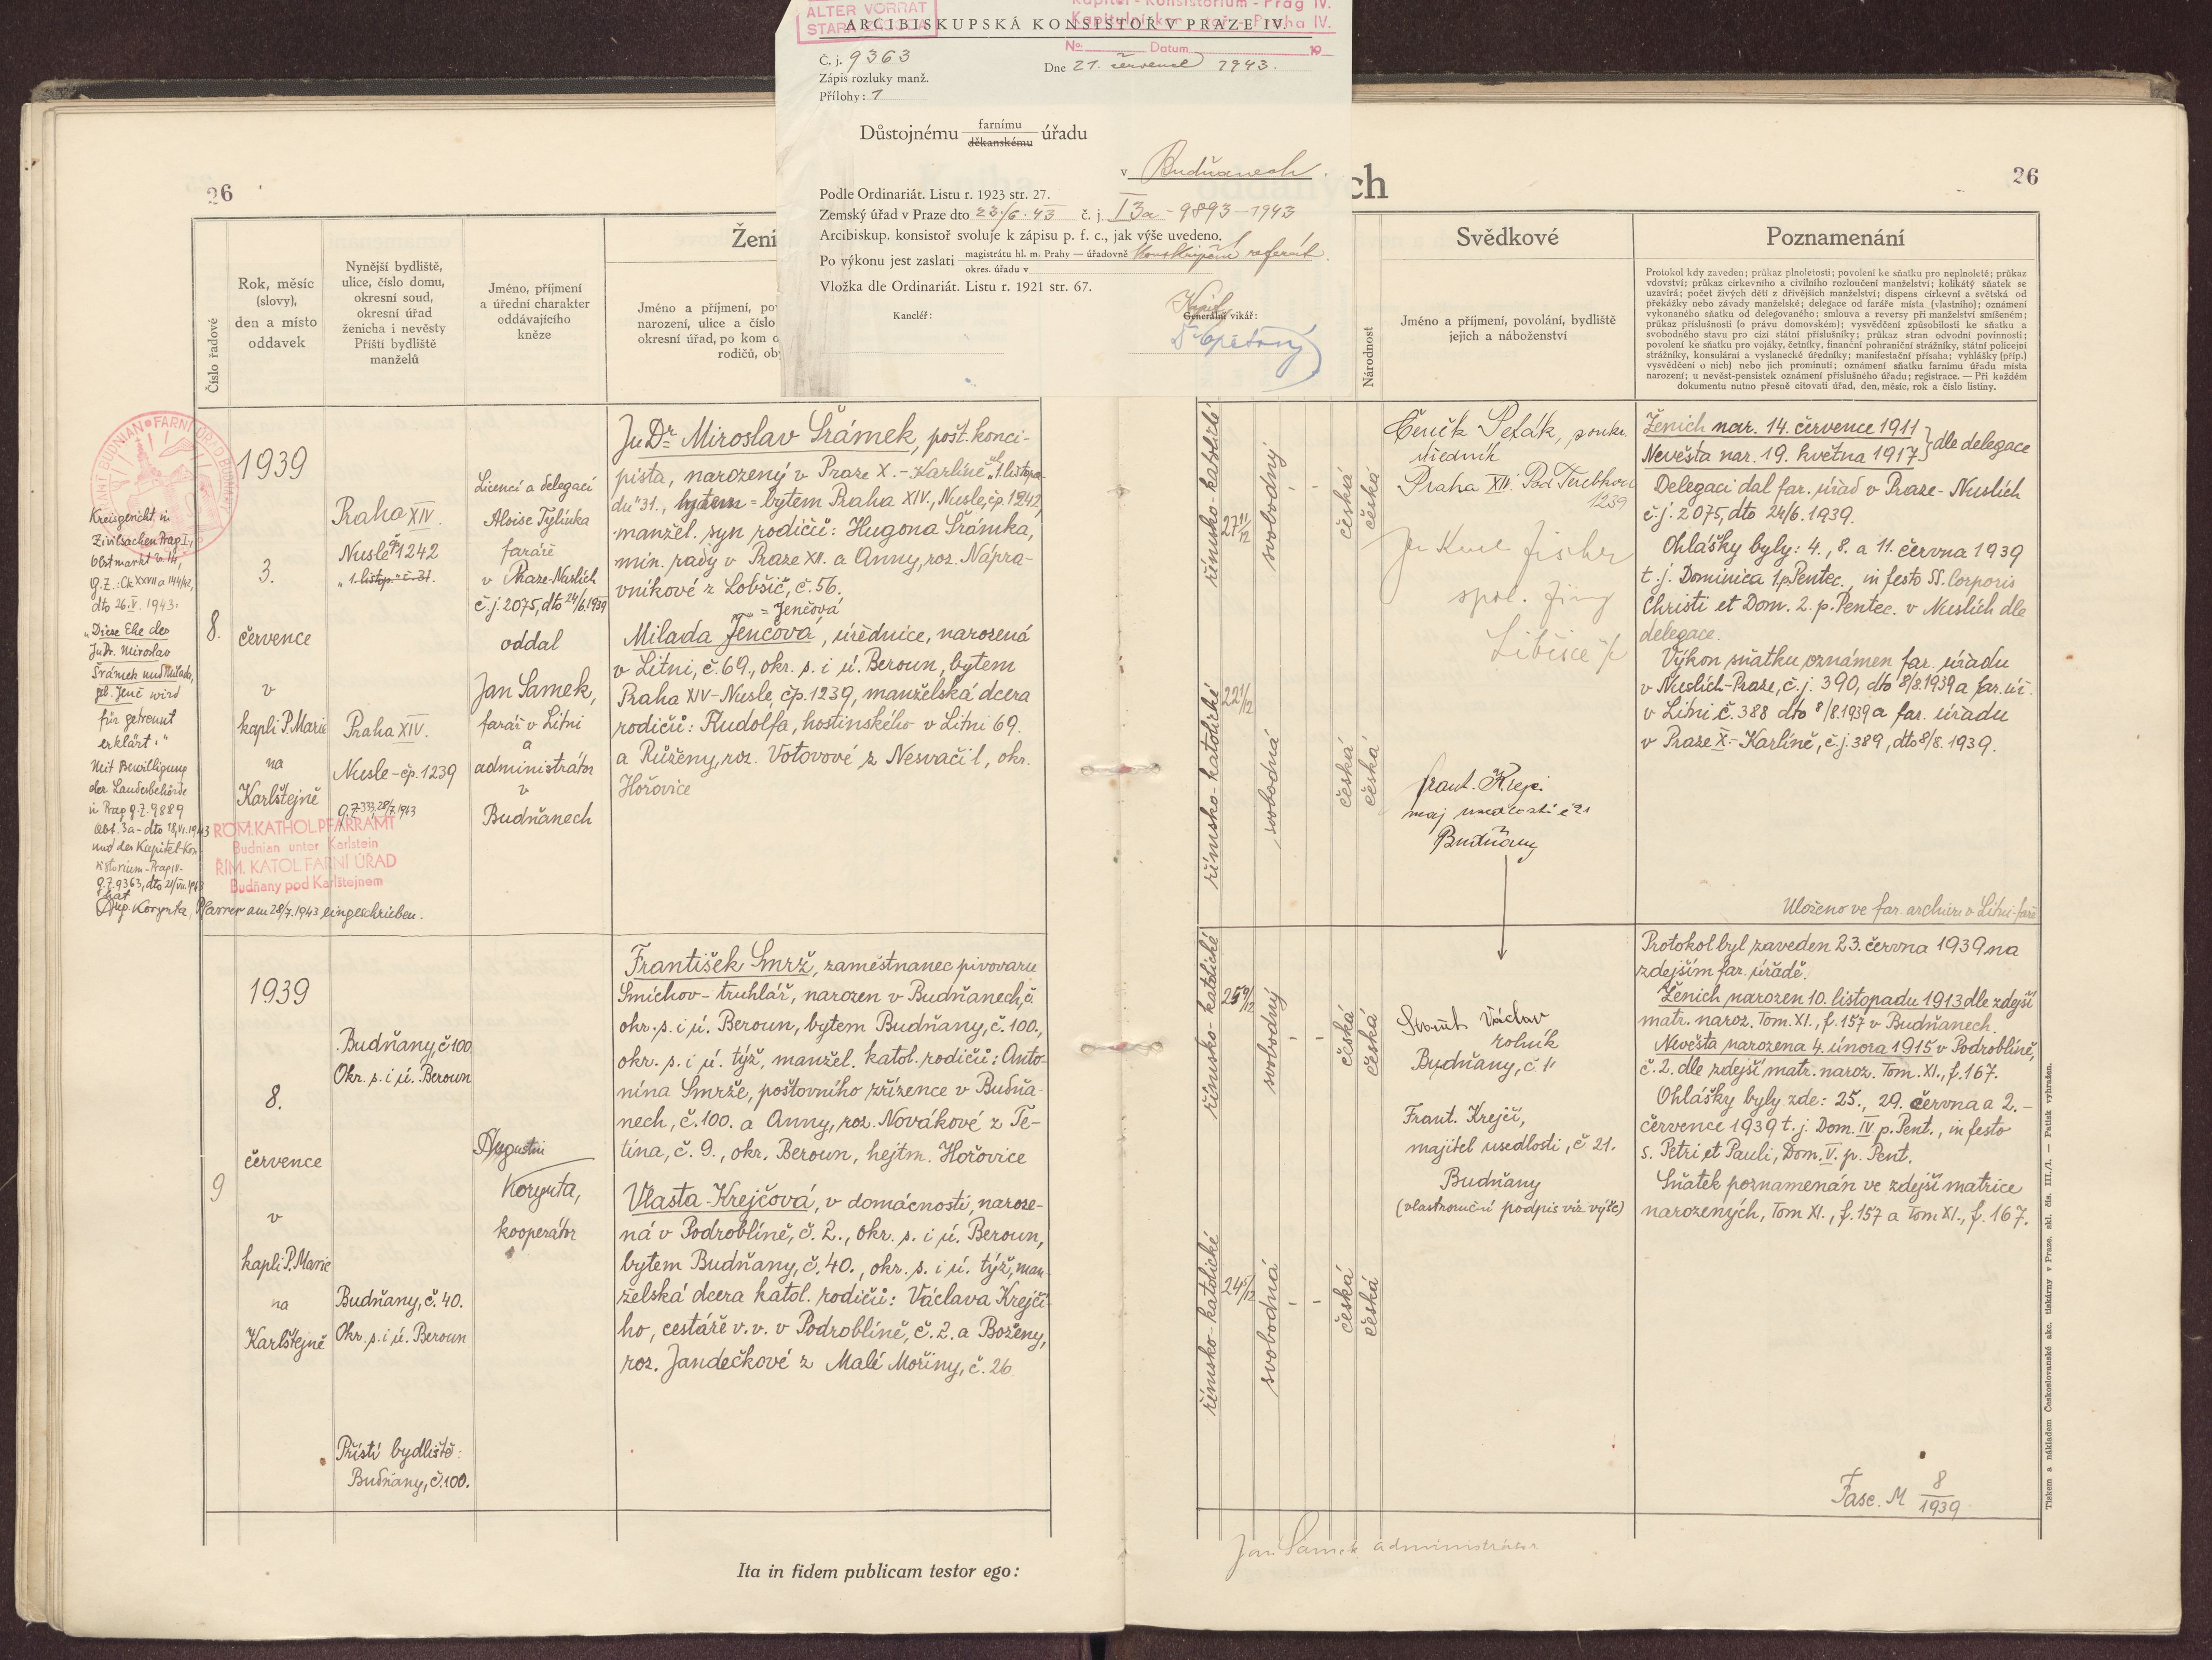 ALTER VORRAT
STARÁ ZÁSOBA
Kapitel-Konsistorium-Prag IV.
Kapitulní konsistoř-Praha IV.
No. Datum 19
ARCIBISKUPSKÁ KONSISTOŘ V PRAZE IV.
Č. j. 9363
Dne 21. července 1943.
Zápis rozluky manž.
Přílohy: 1
Důstojnému farnímu děkanskému úřadu
v Budňanech.
Podle Ordinariát. Listu r. 1923 str. 27.
Zemský úřad v Praze dto 23./6. 43 č. j. I 3a - 9893 - 1943
Arcibiskup. konsistoř svoluje k zápisu p. f. c., jak výše uvedeno.
Po výkonu jest zaslati magistrátu hl. m. Prahy — úřadovně konskripční referát.
okres. úřadu v
Vložka dle Ordinariát. Listu r. 1921 str. 67.
Kancléř:
Generální vikář:
26
Ženi
Číslo řadové
Rok, měsíc
(slovy),
den a místo
oddavek
Nynější bydliště,
ulice, číslo domu,
okresní soud,
okresní úřad
ženicha i nevěsty
Příští bydliště
manželů
Jméno, příjmení
a úřední charakter
oddávajícího
kněze
Jméno a příjmení, pov
narození, ulice a číslo
okresní úřad, po kom
rodičů, ob
Kreisgericht in
Zivilsachen Prag I.,
Obstmarkt
g.Z.: Ck XXVII a 144/42,
dto 26.V. 1943:
„Diese Ehe des
JuDr. Miroslav
Šrámek und Milada,
geb. Jenč wird
für getrennt
erklärt."
Mit Bewilligung
der Landesbehörde
in Prag g.Z. 9889
Abt. 3a - dto 18.VI.1943
und des Kapitel-Kon-
sistorium-Prag IV-
g.Z. 9363, dto 21/VII. 1943
hat
Aug. Korynta, Pfarrer am 28/7.1943 eingeschrieben.
RÖM. KATHOL PFARRAMT
Budnian unter Karlstein
ŘÍM. KATOL FARNÍ ÚŘAD
Budňany pod Karlštejnem
8.
1939
3.
července
v
kapli P. Marie
na
Karlštejně
Praha XIV.
Nusle čp. 1242
„1. listop." č. 31.
Praha XIV.
Nusle - čp. 1239
g.Z. 333, 28/7.1943
Licencí a delegací
Aloise Tylínka
faráře
v Praze-Nuslích
č.j. 2075, dto 24/6.1939
oddal
Jan Samek,
farář v Litni
a
administrátor
v
Budňanech
JuDr. Miroslav Šrámek, pošt. konci-
pista, narozený v Praze X. - Karlíně, ul. „1. listopa-
du" 31., bytem = bytem Praha XIV., Nusle, čp. 1242,
manžel. syn rodičů: Hugona Šrámka,
min. rady v Praze XII. a Anny, roz. Nápra-
vníkové z Lobšič, č. 56.
= Jenčová
Milada Jenčová, úřednice, narozená
v Litni, č. 69., okr. s. i ú. Beroun, bytem
Praha XIV - Nusle, čp. 1239, manželská dcera
rodičů: Rudolfa, hostinského v Litni 69.
a Růženy, roz. Votovové z Nesvačil, okr.
Hořovice
9
1939
8.
července
v
kapli P. Marie
na
Karlštejně
Budňany, č 100
Okr. s. i ú. Beroun
Budňany, č. 40.
Okr. s. i ú. Beroun
Příští bydliště:
Budňany, č. 100.
Augustin
Korynta,
kooperátor
František Smrž, zaměstnanec pivovaru
Smíchov - truhlář, narozen v Budňanech, č.
okr. s. i ú. Beroun, bytem Budňany, č. 100.,
okr. s. i ú. týž, manžel. katol. rodičů: Anto-
nína Smrže, poštovního zřízence v Budňa-
nech, č. 100. a Anny, roz. Novákové z Te-
tína, č. 9., okr. Beroun, hejtm. Hořovice
Vlasta Krejčová, v domácnosti, naroze-
ná v Podroblíně, č. 2., okr. s. i ú. Beroun,
bytem Budňany, č. 40., okr. s. i ú. týž, man-
želská dcera katol. rodičů: Václava Krejčí-
ho, cestáře v. v. v Podroblíně, č. 2. a Boženy,
roz. Jandečkové z Malé Mořiny, č. 26
Ita in fidem publicam testor ego:
ch
26
Národnost
Svědkové
Poznamenání
Jméno a příjmení, povolání, bydliště
jejich a náboženství
Protokol kdy zaveden; průkaz plnoletosti; povolení ke sňatku pro neplnoleté; průkaz
vdovství; průkaz církevního a civilního rozloučení manželství; kolikátý sňatek se
uzavírá; počet živých dětí z dřívějších manželství; dispens církevní a světská od
překážky nebo závady manželské; delegace od faráře místa (vlastního); oznámení
vykonaného sňatku od delegovaného; smlouva a reversy při manželství smíšeném;
průkaz příslušnosti (o právu domovském); vysvědčení způsobilosti ke sňatku a
svobodného stavu pro cizí státní příslušníky; průkaz stran odvodní povinnosti;
povolení ke sňatku pro vojáky, četníky, finanční pohraniční strážníky, státní policejní
strážníky, konsulární a vyslanecké úředníky; manifestační přísaha; vyhlášky (příp.)
vysvědčení o nich) nebo jich prominutí; oznámení sňatku farnímu úřadu místa
narození; u nevěst-pensistek oznámení příslušného úřadu; registrace. — Při každém
dokumentu nutno přesně citovati úřad, den, měsíc, rok a číslo listiny.
římsko-katolické
27 11/12
svobodný
-
česká
česká
římsko-katolické
22 1/12
svobodná
česká
česká
Čeněk Peták, soukr.
úředník
Praha XII. Pod Terebkou
1239
Libčice
Frant. Krejčí
maj usedlosti č 21
Budňany
Ženich nar. 14. července 1911
Nevěsta nar. 19. května 1917 } dle delegace
Delegaci dal far. úřad v Praze - Nuslích
č.j. 2075, dto 24/6. 1939.
Ohlášky byly: 4., 8. a 11. června 1939
t. j. Dominica 1. p. Pentec., in festo SS. Corporis
Christi et Dom. 2. p. Pentec. v Nuslích dle
delegace.
Výkon sňatku oznámen far. úřadu
v Nuslích-Praze, č.j. 390, dto 8/8.1939 a far. úř.
v Litni č. 388 dto 8/8.1939 a far. úřadu
v Praze X. - Karlíně, č.j. 389, dto 8/8. 1939.
Uloženo ve far. archivu v Litni-fara
římsko-katolické
25 9/12
svobodný
-
česká
česká
římsko-katolické
24 5/12
svobodná
-
česká
česká
Václav
rolník
Budňany, č. 11
Frant. Krejčí,
majitel usedlosti, č 21.
Budňany
(vlastnoruční podpis viz výše)
Protokol byl zaveden 23. června 1939 na
zdejším far. úřadě.
Ženich narozen 10. listopadu 1913 dle zdejší
matr. naroz. Tom. XI., f. 157 v Budňanech.
Nevěsta narozena 4. února 1915 v Podroblíně,
č. 2. dle zdejší matr. naroz. Tom. XI., f. 167.
Ohlášky byly zde: 25., 29. června a 2. -
července 1939 t. j. Dom. IV. p. Pent., in festo
s. Petri et Pauli, Dom. V. p. Pent.
Sňatek poznamenán ve zdejší matrice
narozených, Tom XI., f. 157 a Tom XI., f. 167.
Fasc. M 8/1939
Jan Samek administrátor
Tiskem a nákladem Československé akc. tiskárny v Praze, skl. čís. III./1. — Patisk vyhražen.